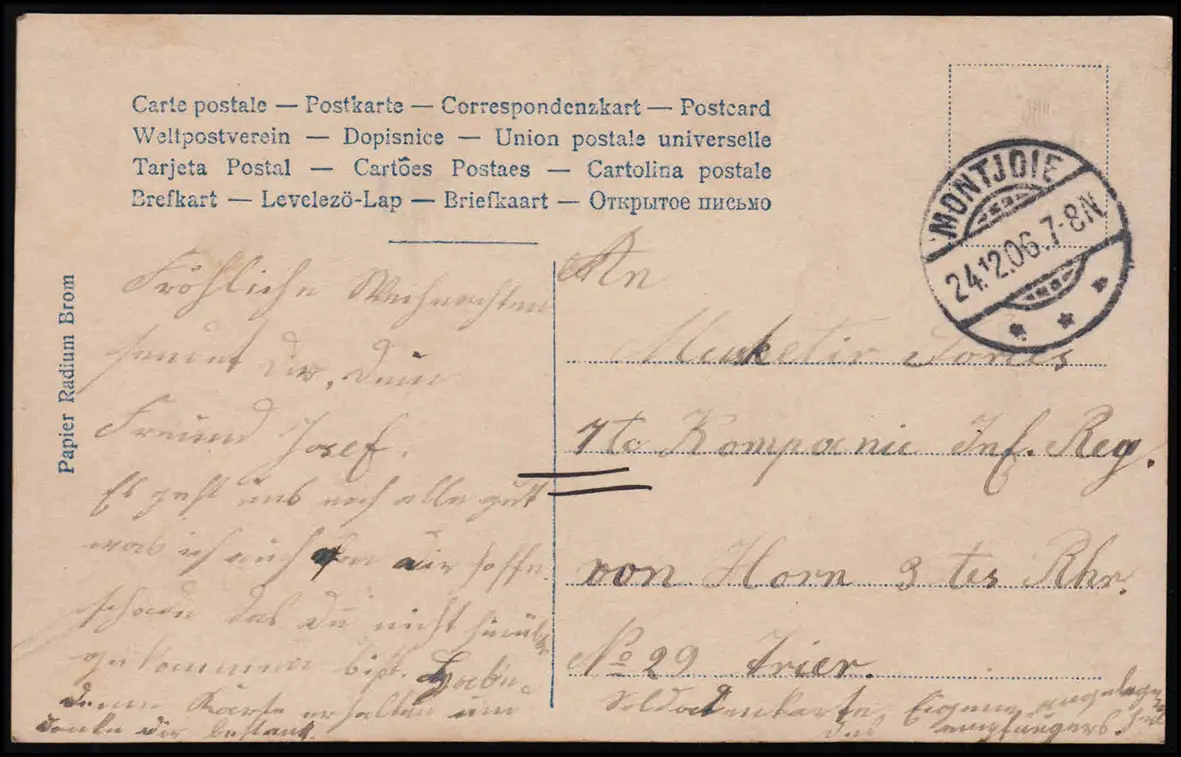 Carte postale — Postkarte — Correspondenzkart — Postcard
Weltpostverein — Dopisnice — Union postale universelle
Tarjeta Postal — Cartões Postaes — Cartolina postale
Brefkart — Levelezö-Lap — Briefkaart — Открытое письмо
MONTJOIE
24.12.06.7-8N
Papier Radium Brom
Fröhliche Weihnachten
sendet dir, dein
Freund Josef.
Es geht uns noch alle gut
was ich auch von dir hoffe
schade das du nicht
gekommen bist. Habe
deine Karte erhalten
danke dir bestens.
An
Musketir
7te Kompanie Inf. Reg.
von Horn 3 tes Rhr.
No 29 Trier.
Soldatenkarte, Eigene
des empfängers